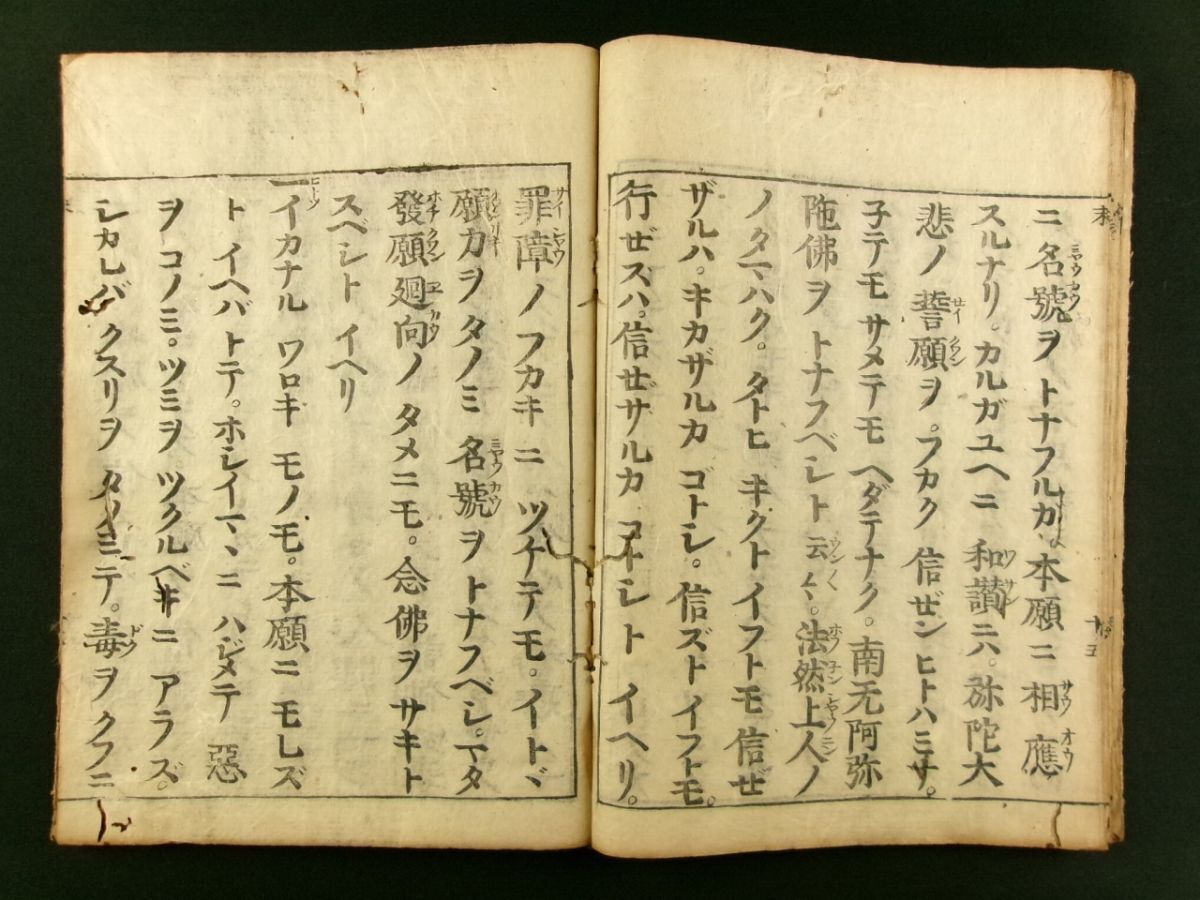 ニ 名號ヲ トナフルカ、本願ニ 相應
スルナリ。カルガユヘニ 和讃ニハ。弥陀大
悲ノ 誓願ヲ。フカク 信ゼン ヒトハミナ。
子テモ サメテモ ヘダテナク。南无阿弥
陁佛ヲ トナフベシト 云〱。法然上人ノ
ノタマハク。タトヒ キクト イフトモ 信ゼ
ザルハ。キカザルカ ゴトシ。信ズト イフトモ。
行ゼズハ。信ゼサルカ コトシト イヘリ。
罪障ノ フカキニ ツケテモ。イトヾ
願力ヲ タノミ 名號ヲ トナフベシ。マタ
發願廻向ノ タメニモ。念佛ヲ サキト
スベシト イヘリ
一イカナル ワロキ モノモ。本願ニ モレズ
ト イヘバトテ。ホシイマヽニ ハジメテ 惡
ヲ コノミ。ツミヲ ツクルベキニ アラズ。
シカレバ クスリヲ タノミテ。毒ヲ クフニ